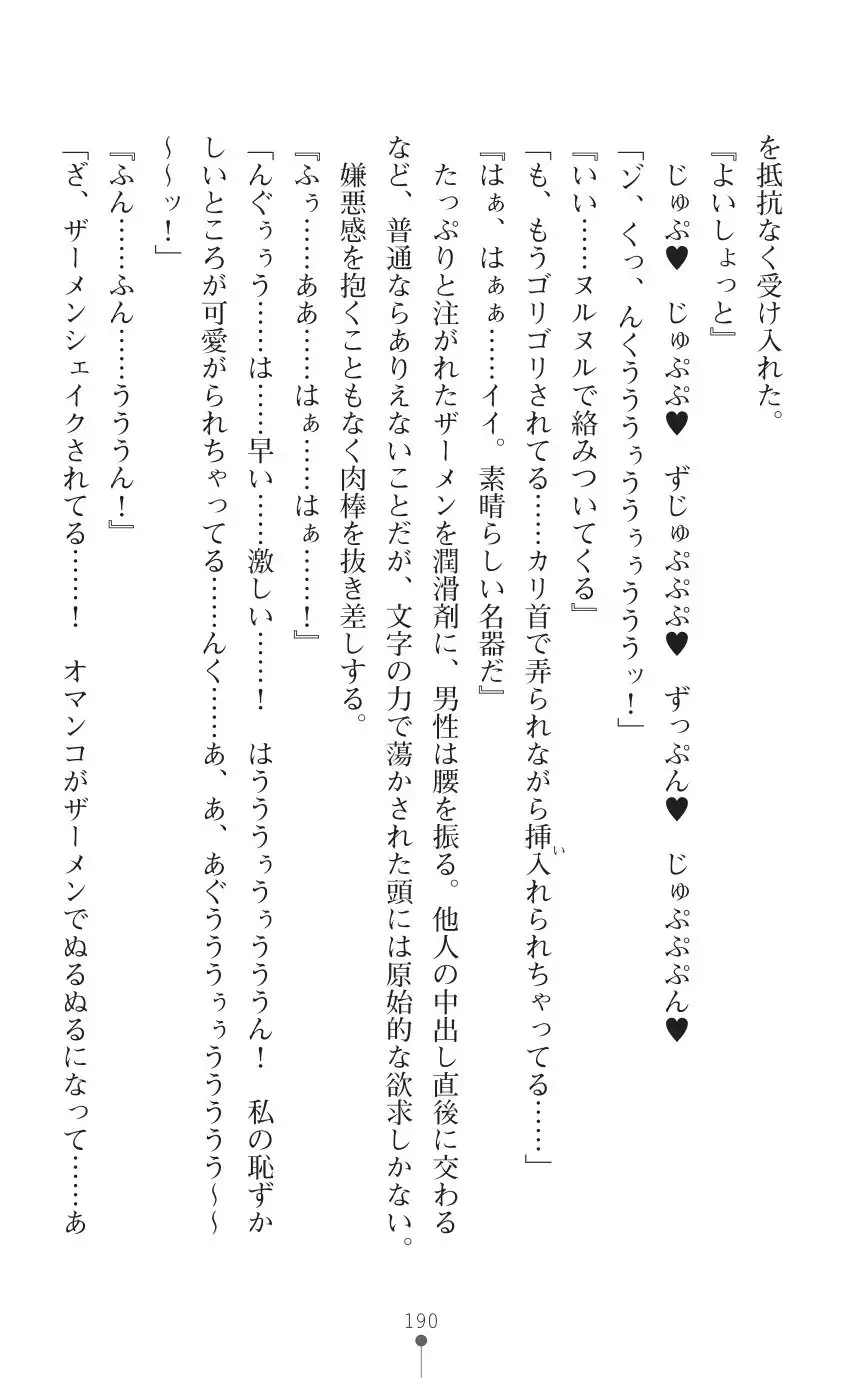 を抵抗なく受け入れた。
『よいしょっと』
　じゅぷ♥　じゅぷぷ♥　ずじゅぷぷぷ♥　ずっぷん♥　じゅぷぷぷん♥
「ゾ、くっ、んくうううぅううぅぅうううッ！」
『いい……ヌルヌルで絡みついてくる』
「も、もうゴリゴリされてる……カリ首で弄られながら挿入れられちゃってる……」
『はぁ、はぁぁ……イイ。素晴らしい名器だ』
　たっぷりと注がれたザーメンを潤滑剤に、男性は腰を振る。他人の中出し直後に交わる
など、普通ならありえないことだが、文字の力で蕩かされた頭には原始的な欲求しかない。
　嫌悪感を抱くこともなく肉棒を抜き差しする。
『ふぅ……ああ……はぁ……はぁ……！』
「んぐぅぅう……は……早い……激しい……！　はうううぅうぅうううん！　私の恥ずか
しいところが可愛がられちゃってる……んく……あ、あ、あぐうううぅぅううううう～～
～～ッ！」
『ふん……ふん……うううん！』
「ざ、ザーメンシェイクされてる……！　オマンコがザーメンでぬるぬるになって……あ
い
190